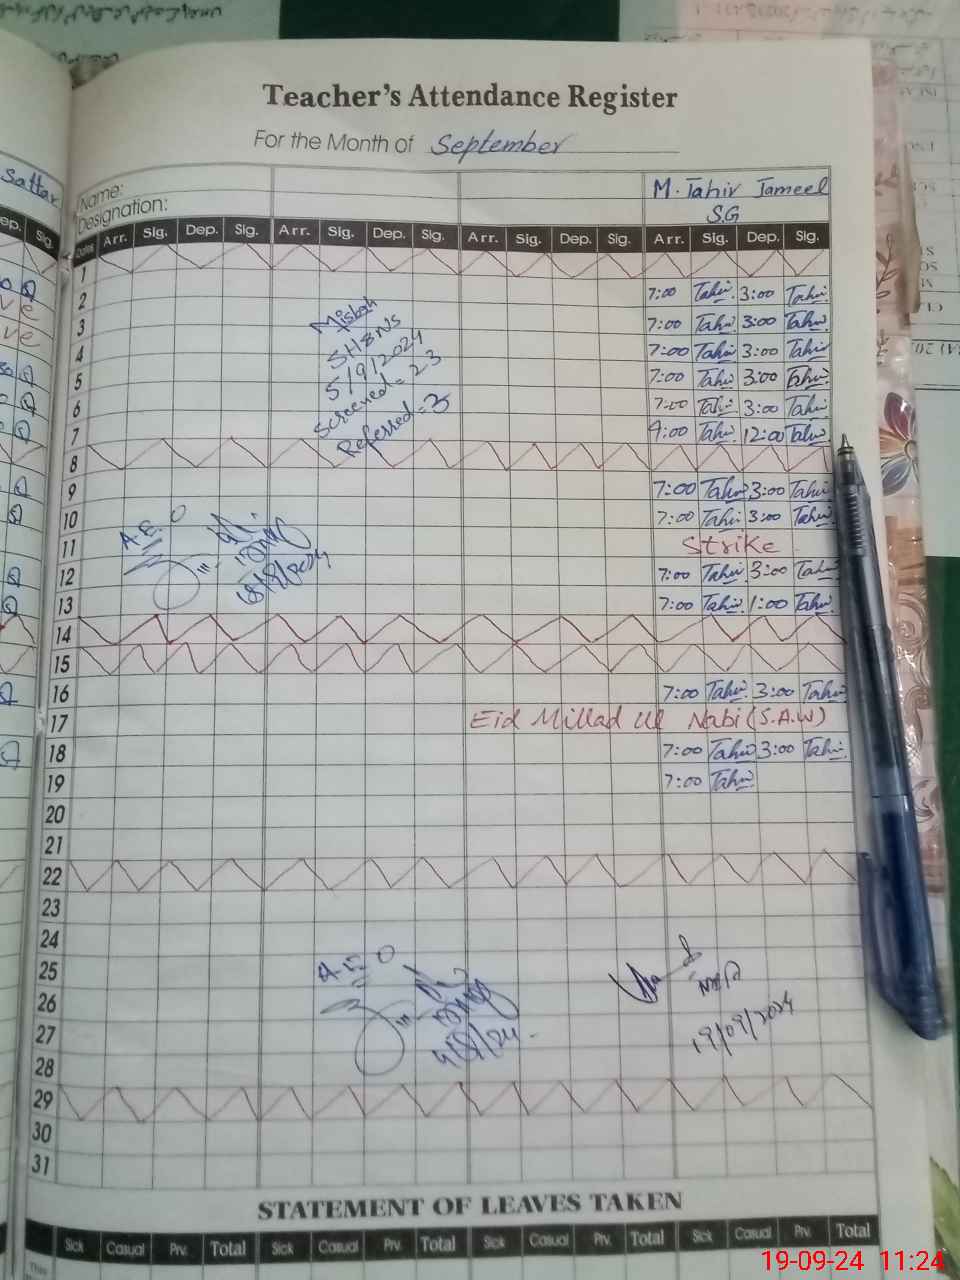 Teacher's Attendance Register
For the Month of September
Sattar
Name:
Designation:
M. Tahir Jameel
S.G
Dep. Sig.
Dates Arr. Sig. Dep. Sig. Arr. Sig. Dep. Sig. Arr. Sig. Dep. Sig. Arr. Sig. Dep. Sig.
1
2 7:00 Tahir 3:00 Tahir
3 7:00 Tahir 3:00 Tahir
4 7:00 Tahir 3:00 Tahir
5 7:00 Tahir 3:00 Tahir
6 7:00 Tahir 3:00 Tahir
7 9:00 Tahir 12:00 Tahir
Misbah
SH&NS
5/9/2024
Screened = 23
Referred = 3
8
9 7:00 Tahir 3:00 Tahir
10 7:00 Tahir 3:00 Tahir
11 Strike
12 7:00 Tahir 3:00 Tahir
13 7:00 Tahir 1:00 Tahir
A.E.O
14
15
16 7:00 Tahir 3:00 Tahir
17 Eid Millad Ul Nabi (S.A.W)
18 7:00 Tahir 3:00 Tahir
19 7:00 Tahir
20
21
22
23
24
25
26
27
28
A.E.O
19/09/2024
29
30
31
STATEMENT OF LEAVES TAKEN
Sick Casual Prv. Total Sick Casual Prv. Total Sick Casual Prv. Total Sick Casual Prv. Total
This
19-09-24 11:24